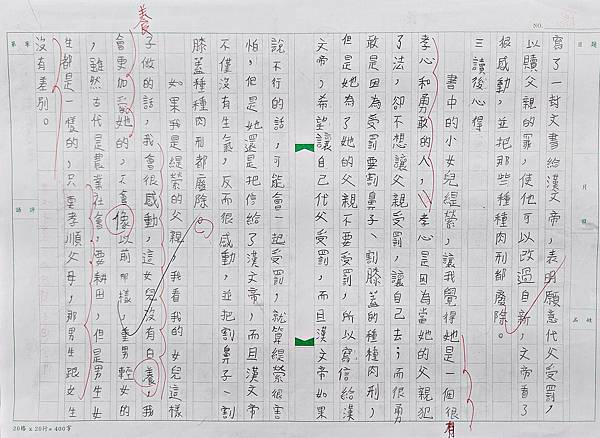 寫了一封文書給漢文帝，表明願意代父受罰，
以贖父親的罪，使他可以改過自新，文帝看了
很感動，並把那些種種肉刑都廢除。
三讀後心得
書中的小女兒緹縈，讓我覺得她是一個很有
孝心和勇敢的人，孝心是因為當她的父親犯
了法，卻不想讓父親受罰，讓自己去；而很勇
敢是因為受罰要割鼻子、割膝蓋的種種肉刑，
但是她為了她的父親不要受罰，所以寫信給漢
文帝，希望讓自己代父受罰，而且漢文帝如果
說不行的話，可能會一起受罰，就算緹縈很害
怕，但是她還是把信給了漢文帝，而且漢文帝
不僅沒有生氣，反而很感動，並把割鼻子、割
膝蓋種種肉刑都廢除。
如果我是緹縈的父親，我看我的女兒這樣
子做的話，我會很感動，這女兒沒有白養，我
會更加愛她的，不會像以前那樣，重男輕女的
，雖然古代是農業社會，要耕田，但是男生女
生都是一樣的，只要孝順父母，那男生跟女生
沒有差別。
養
NO.
日 題
月 組
品 名
第 章
講 評
20格 x 20行 = 400字